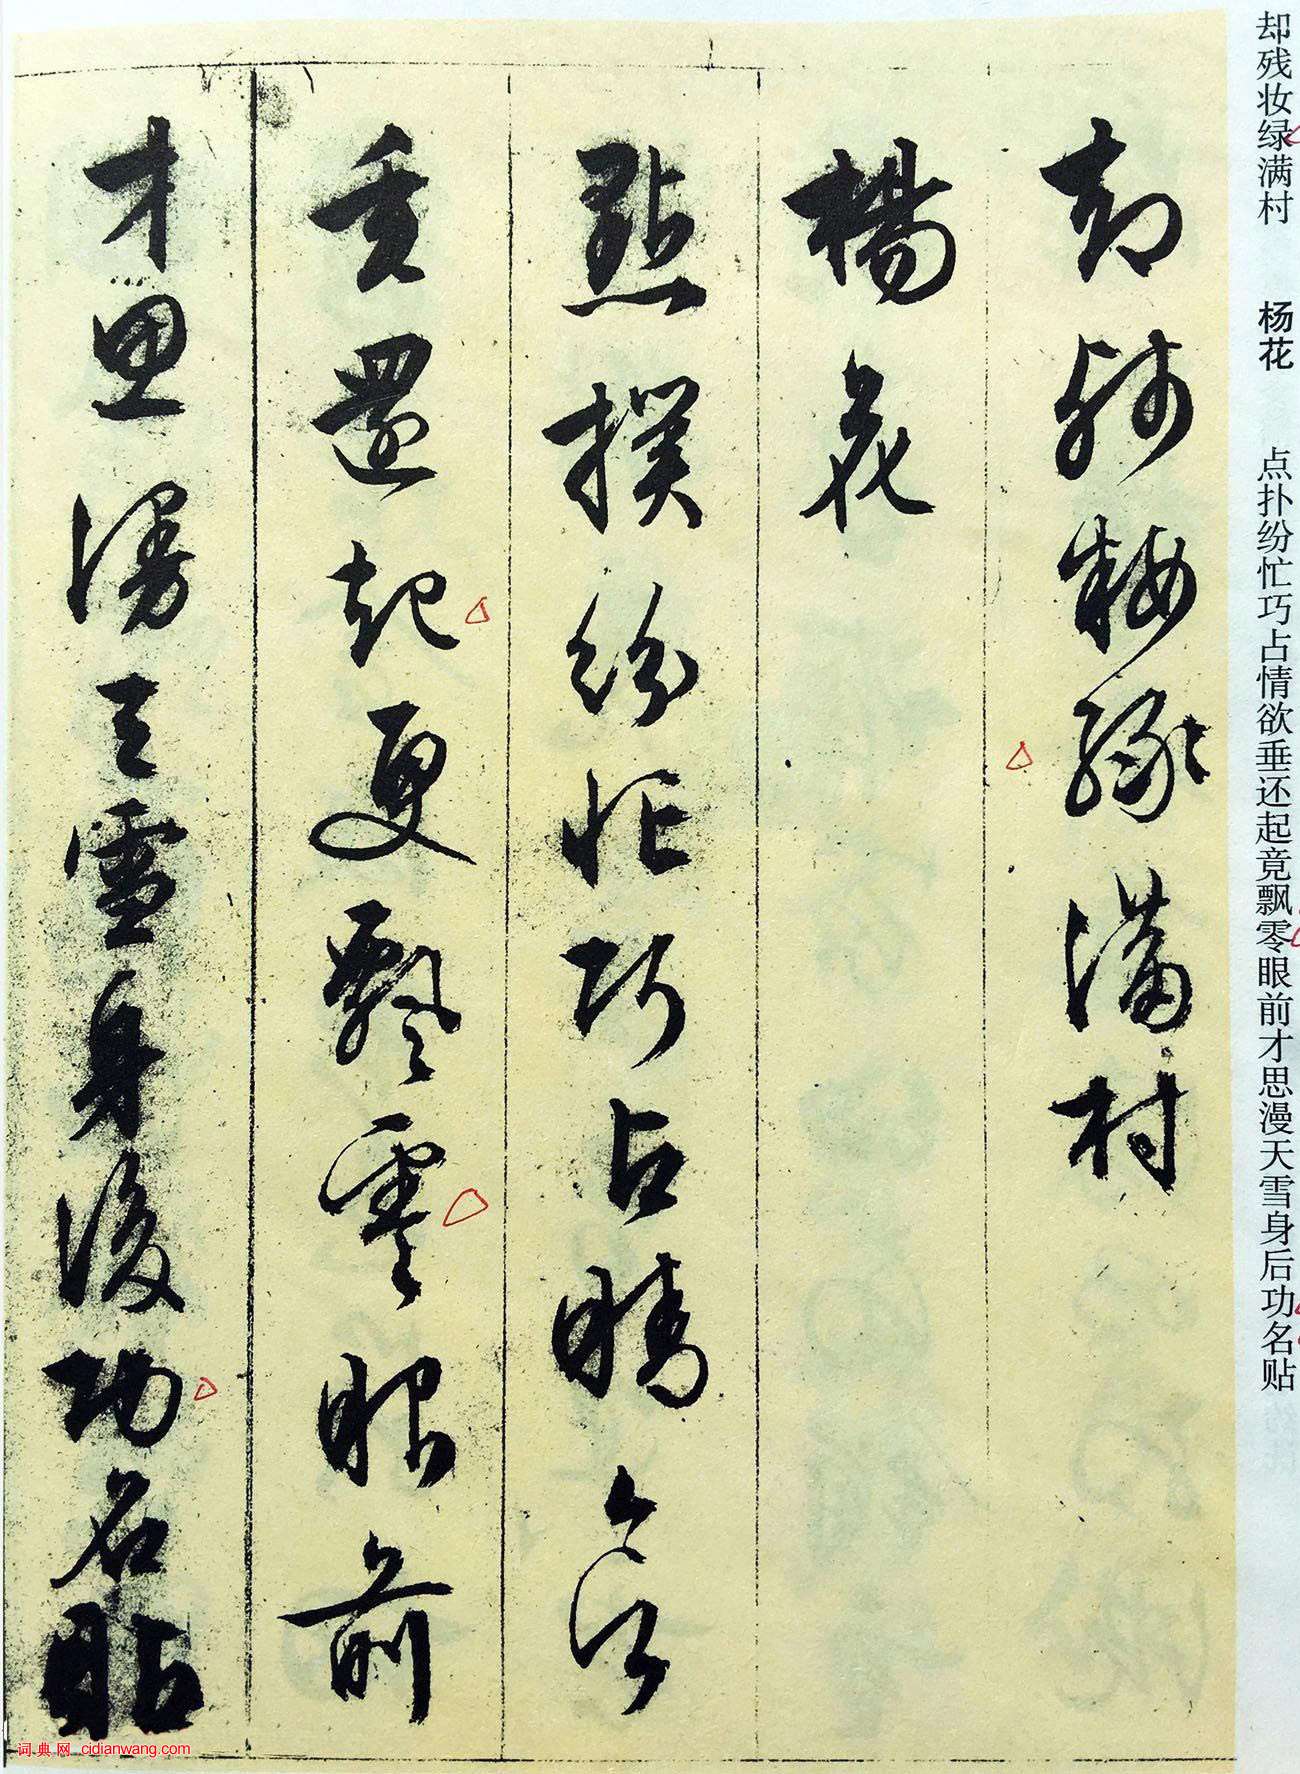 却残妆绿满村 杨花 点扑纷忙巧占情欲垂还起竟飘零眼前才思漫天雪身后功名贴
却殘粧綠滿村
楊花
點撲紛忙巧占晴欲
垂還起更飄零眼前
才思漫天雪身後功名貼
词典网 cidianwang.com